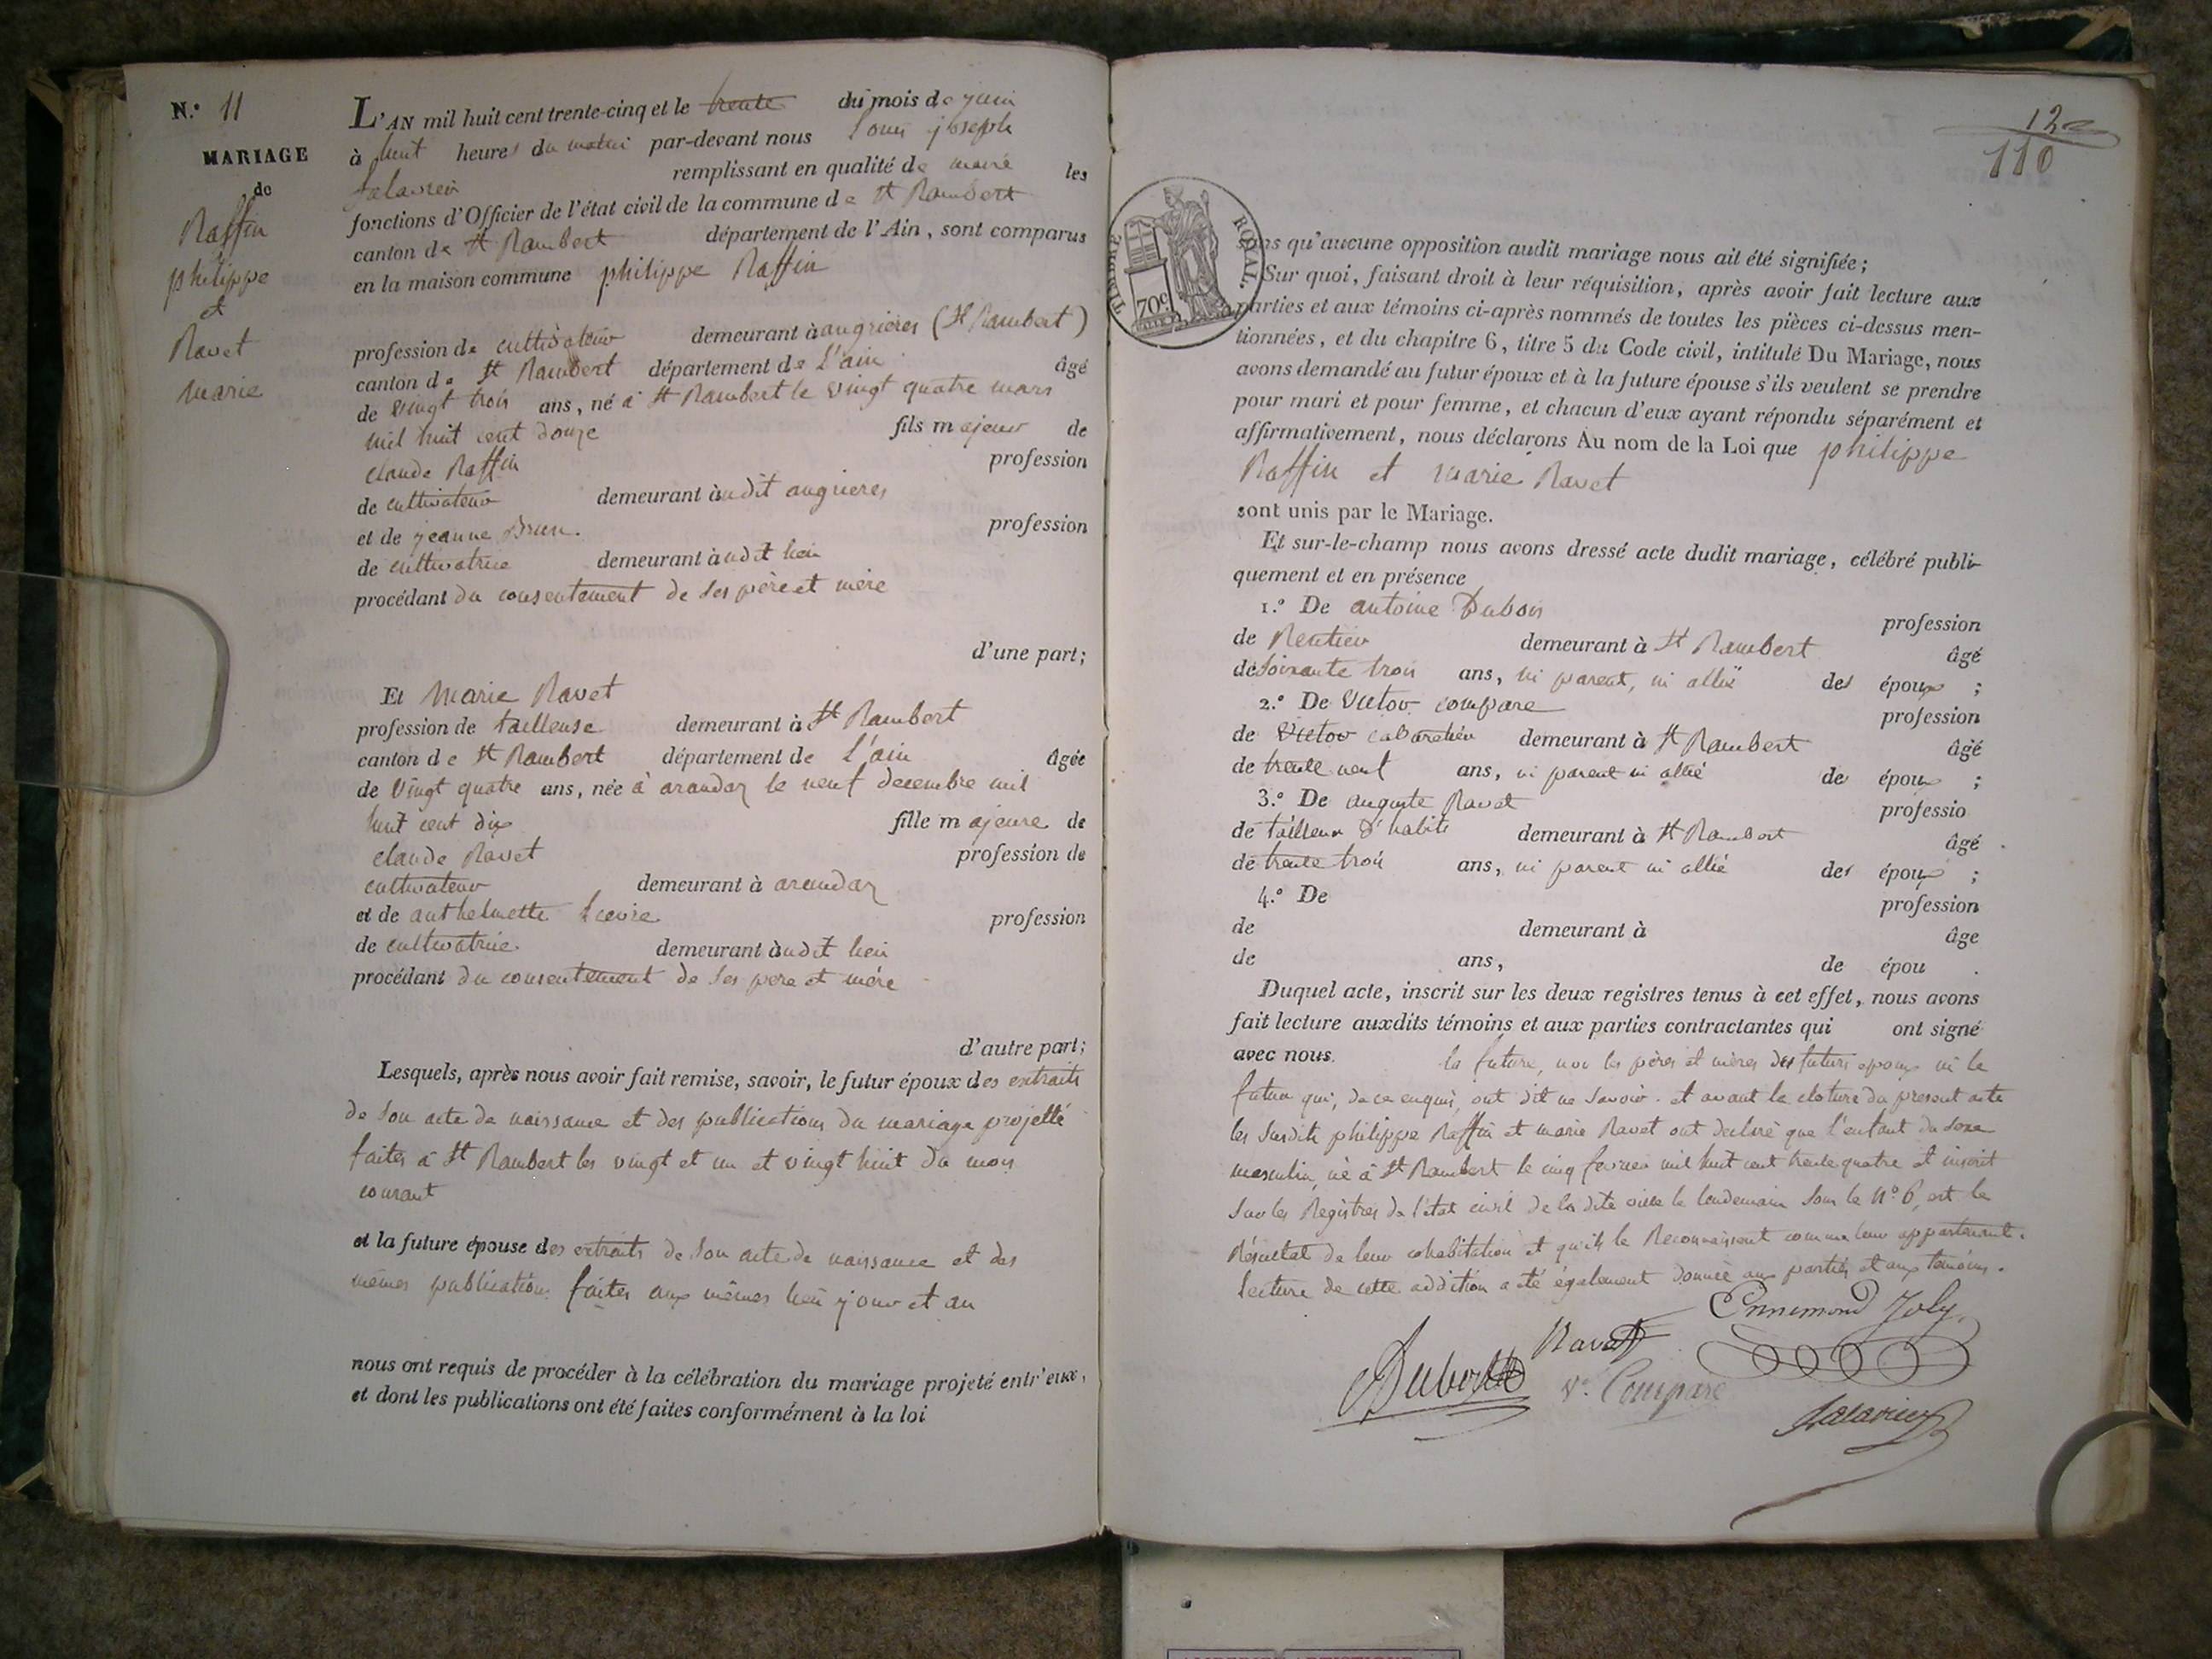 N.° 11
MARIAGE
de
Raffin
philippe
et
Ravet
marie
L'AN mil huit cent trente-cinq et le trente du mois de juin
à huit heures du matin par-devant nous Louis joseph
remplissant en qualité de maire les
fonctions d'Officier de l'état civil de la commune de St Rambert
canton de St Rambert département de l'Ain, sont comparus
en la maison commune philippe Raffin
profession de cultivateur demeurant à angrieres (St Rambert)
canton de St Rambert département de L'ain âgé
de vingt trois ans, né à St Rambert le vingt quatre mars
mil huit cent douze fils majeur de
claude Raffin profession
de cultivateur demeurant àudit angrieres
et de jeanne Brun. profession
de cultivatrice demeurant àudit lieu
procédant du consentement de ses père et mère
d'une part;
Et Marie Ravet
profession de tailleuse demeurant à St Rambert
canton de St Rambert département de L'ain âgée
de vingt quatre ans, née à arandaz le neuf decembre mil
huit cent dix fille majeure de
claude Ravet profession de
cultivateur demeurant à arandaz
et de anthelmette profession
de cultivatrice. demeurant àudit lieu
procédant du consentement de ses pere et mère
d'autre part;
Lesquels, après nous avoir fait remise, savoir, le futur époux des extraits
de son acte de naissance et des publications du mariage projetté
faites à St Rambert les vingt et un et vingt huit du mois
courant
et la future épouse des extraits de son acte de naissance et des
mêmes publications faites aux mêmes lieu jour et an
nous ont requis de procéder à la célébration du mariage projeté entr'eux,
et dont les publications ont été faites conformément à la loi
122
110
TIMBRE ROYAL.
70c
sans qu'aucune opposition audit mariage nous ait été signifiée;
Sur quoi, faisant droit à leur réquisition, après avoir fait lecture aux
parties et aux témoins ci-après nommés de toutes les pièces ci-dessus men-
tionnées, et du chapitre 6, titre 5 du Code civil, intitulé Du Mariage, nous
avons demandé au futur époux et à la future épouse s'ils veulent se prendre
pour mari et pour femme, et chacun d'eux ayant répondu séparément et
affirmativement, nous déclarons Au nom de la Loi que philippe
Raffin et marie Ravet
sont unis par le Mariage.
Et sur-le-champ nous avons dressé acte dudit mariage, célébré publi-
quement et en présence
1.° De antoine Dubois profession
de Rentier demeurant à St Rambert âgé
de soixante trois ans, ni parent, ni allié des époux ;
2.° De Victor compare profession
de Victor cabaretier demeurant à St Rambert âgé
de trente neuf ans, ni parent ni allié des époux ;
3.° De auguste Ravet professio
de tailleur d'habits demeurant à St Rambert âgé
de trente trois ans, ni parent ni allié des époux ;
4.° De profession
de demeurant à âge
de ans, de épou .
Duquel acte, inscrit sur les deux registres tenus à cet effet, nous avons
fait lecture auxdits témoins et aux parties contractantes qui ont signé
avec nous. la future, non les pères et mères des futurs epoux ni le
futur qui, de ce enquis, ont dit ne savoir. et avant la cloture du present acte
les susdits philippe Raffin et marie Ravet ont declaré que l'enfant du sexe
masculin, né à St Rambert le cinq fevrier mil huit cent trente quatre et inscrit
sur les Registres de l'état civil de la dite ville le lendemain sous le N° 6, est le
Résultat de leur cohabitation et qu'ils le Reconnaissent comme leur appartenant.
lecture de cette addition a été également donnée aux parties et aux témoins.
Ennemond Joly
Ravet
Dubois
Vr. Compare